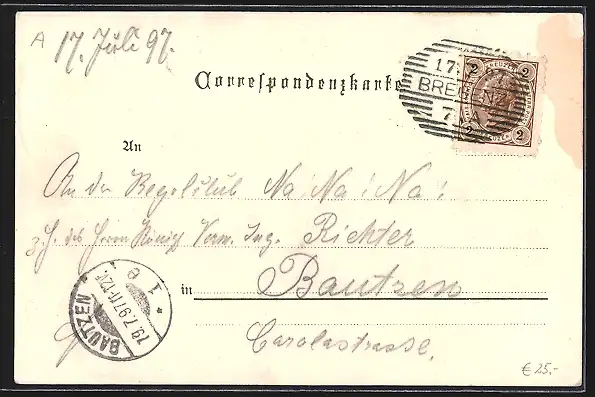 A
17. Juli 97.
Correspondenzkarte
17
BREGENZ
7
2 KREUZER 2
2 KREUZER 2
An
An den Kegelclub Na! Na! Na!
z. H. des Herrn Königl. Verm. Ing. Richter
in Bautzen
Carolastrasse.
BAUTZEN
19.7.97.11-12V.
* 1 e *
€ 25.-